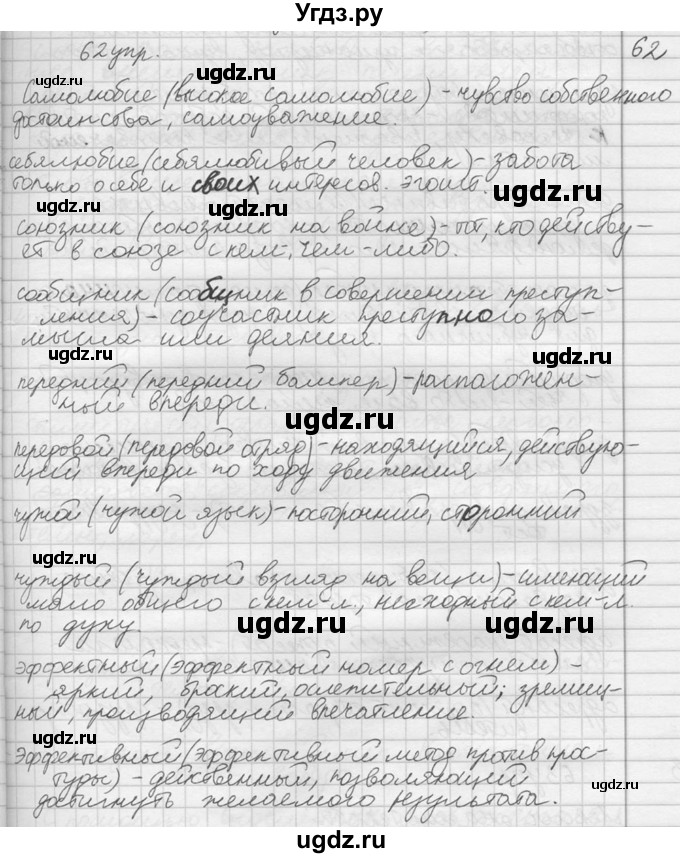 Угдз.ру
62 упр. 62
ugdz.ru ugdz.ru
Самолюбие (высокое самолюбие) - чувство собственного
достоинства, самоуважение.
ugdz.ru
себялюбие (себялюбивый человек) - забота
только о себе и своих интересов. эгоист.
ugdz.ru ugdz.ru
союзник (союзник на войне) - тот, кто действу-
ет в союзе с кем-, чем-либо.
ugdz.ru
сообщник (сообщник в совершении преступ-
ления) - соучастник преступного за-
мысла или деяния.
ugdz.ru ugdz.ru
передний (передний бампер) - расположен-
ный впереди.
ugdz.ru ugdz.ru
передовой (передовой отряд) - находящийся, действую-
щий впереди по ходу движения
ugdz.ru
чужой (чужой язык) - посторонний, сторонний
ugdz.ru
чуждый (чуждый взгляд на вещи) - имеющий
мало общего с кем-л, несходный с кем-л.
по духу.
ugdz.ru ugdz.ru
эффектный (эффектный номер с огнем) -
яркий, броский, ослепительный; зрелищ-
ный, производящий впечатление.
ugdz.ru ugdz.ru
Эффективный (эффективный метод против прос-
туры) - действенный, позволяющий
достигнуть желаемого результата.
ugdz.ru ugdz.ru
ugdz.ru